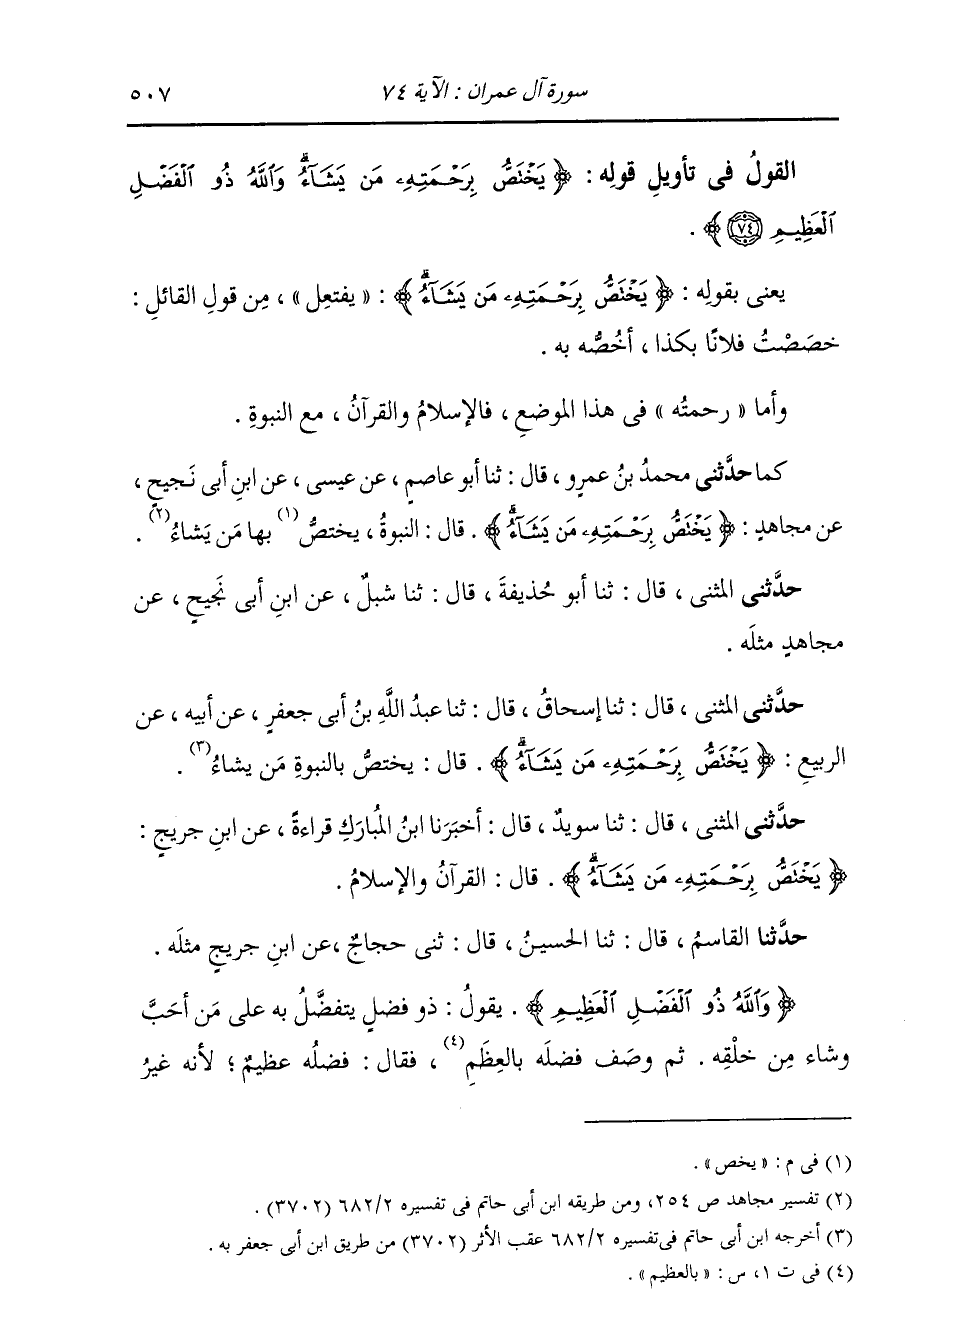 سورة آل عمران : الآية ٧٤ ٥٠٧
القولُ فى تأويلِ قولِه : ﴿ يَخْتَصُّ بِرَحْمَتِهِۦ مَن يَشَآءُۗ وَٱللَّهُ ذُو ٱلْفَضْلِ
ٱلْعَظِيمِ ٧٤ ﴾ .
يعنى بقولِه : ﴿ يَخْتَصُّ بِرَحْمَتِهِۦ مَن يَشَآءُۗ ﴾ : « يفتعِل » ، مِن قولِ القائلِ :
خصَصْتُ فلانًا بكذا ، أخُصُّه به .
وأما « رحمتُه » فى هذا الموضعِ ، فالإسلامُ والقرآنُ ، مع النبوةِ .
كما حدَّثنى محمدُ بنُ عمرٍو ، قال : ثنا أبو عاصمٍ ، عن عيسى ، عن ابنِ أبى نَجيحٍ ،
عن مجاهدٍ : ﴿ يَخْتَصُّ بِرَحْمَتِهِۦ مَن يَشَآءُۗ ﴾ . قال : النبوةُ ، يختصُّ (١) بها مَن يَشاءُ (٢) .
حدَّثنى المثنى ، قال : ثنا أبو حُذيفةَ ، قال : ثنا شبلٌ ، عن ابنِ أبى نَجيحٍ ، عن
مجاهدٍ مثلَه .
حدَّثنى المثنى ، قال : ثنا إسحاقُ ، قال : ثنا عبدُ اللَّهِ بنُ أبى جعفرٍ ، عن أبيه ، عن
الربيعِ : ﴿ يَخْتَصُّ بِرَحْمَتِهِۦ مَن يَشَآءُۗ ﴾ . قال : يختصُّ بالنبوةِ مَن يشاءُ (٣) .
حدَّثنى المثنى ، قال : ثنا سويدٌ ، قال : أخبَرَنا ابنُ المُبارَكِ قراءةً ، عن ابنِ جريجٍ :
﴿ يَخْتَصُّ بِرَحْمَتِهِۦ مَن يَشَآءُۗ ﴾ . قال : القرآنُ والإسلامُ .
حدَّثنا القاسمُ ، قال : ثنا الحسينُ ، قال : ثنى حجاجٌ ،عن ابنِ جريجٍ مثلَه .
﴿ وَٱللَّهُ ذُو ٱلْفَضْلِ ٱلْعَظِيمِ ﴾ . يقولُ : ذو فضلٍ يتفضَّلُ به على مَن أحَبَّ
وشاء مِن خلْقِه . ثم وصَف فضلَه بالعِظَمِ (٤) ، فقال : فضلُه عظيمٌ ؛ لأنه غيرُ
(١) فى م : « يخص » .
(٢) تفسير مجاهد ص ٢٥٤، ومن طريقه ابن أبى حاتم فى تفسيره ٦٨٢/٢ (٣٧٠٢) .
(٣) أخرجه ابن أبى حاتم فى تفسيره ٦٨٢/٢ عقب الأثر (٣٧٠٢) من طريق ابن أبى جعفر به .
(٤) فى ت ١، س : « بالعظيم » .